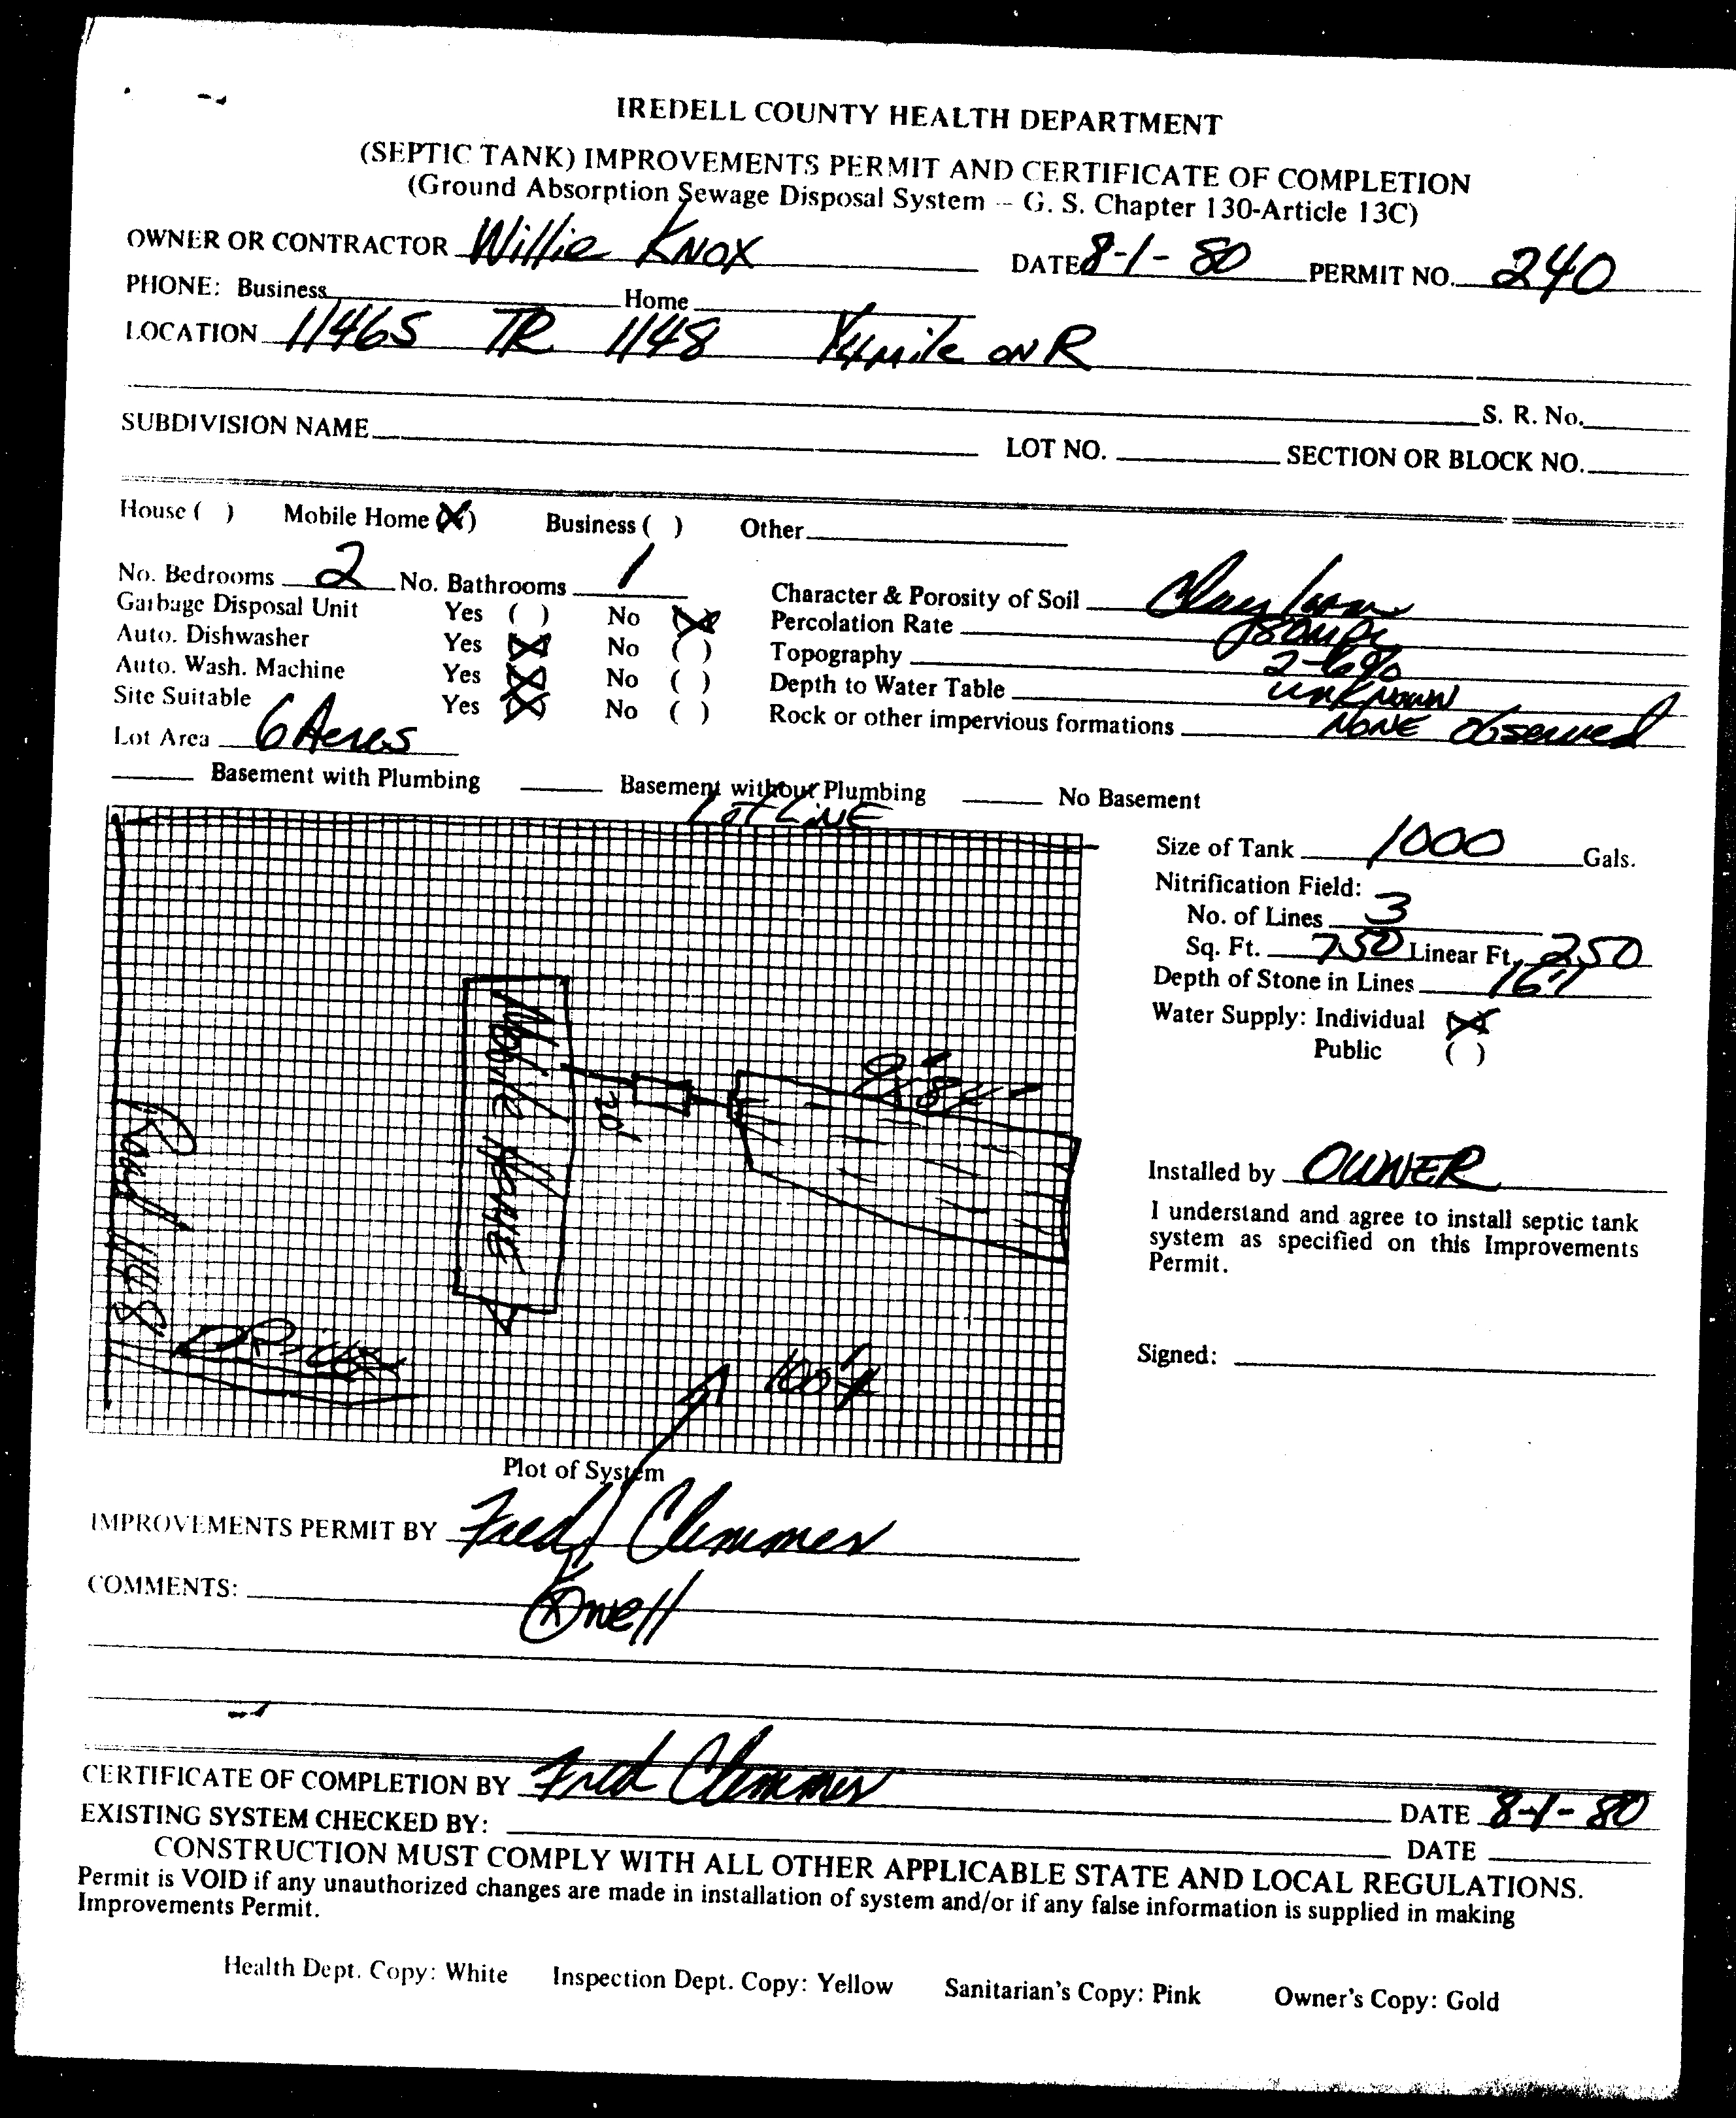 IREDELL COUNTY HEALTH DEPARTMENT
(SEPTIC TANK) IMPROVEMENTS PERMIT AND CERTIFICATE OF COMPLETION
(Ground Absorption Sewage Disposal System -- G. S. Chapter 130-Article 13C)
OWNER OR CONTRACTOR Willie Knox DATE 8-1-80 PERMIT NO. 240
PHONE: Business Home
LOCATION 1146S TR 1148 1/4 mile on R
S. R. No.
SUBDIVISION NAME LOT NO. SECTION OR BLOCK NO.
House ( ) Mobile Home (X) Business ( ) Other
No. Bedrooms 2 No. Bathrooms 1
Garbage Disposal Unit Yes ( ) No (X)
Auto. Dishwasher Yes (X) No ( )
Auto. Wash. Machine Yes (X) No ( )
Site Suitable Yes (X) No ( )
Lot Area 6 Acres
Character & Porosity of Soil Clay loam
Percolation Rate
Topography 2-6%
Depth to Water Table unknown
Rock or other impervious formations NONE observed
Basement with Plumbing Basement without Plumbing No Basement
Lot LiNE
Mobile Home
20'
Road 1148
Drive
100'
Plot of System
Size of Tank 1000 Gals.
Nitrification Field:
No. of Lines 3
Sq. Ft. 750 Linear Ft. 250
Depth of Stone in Lines 16"
Water Supply: Individual (X)
Public ( )
Installed by OWNER
I understand and agree to install septic tank
system as specified on this Improvements
Permit.
Signed:
IMPROVEMENTS PERMIT BY Fred Clemmer
COMMENTS:
well
CERTIFICATE OF COMPLETION BY Fred Clemmer DATE 8-1-80
EXISTING SYSTEM CHECKED BY: DATE
CONSTRUCTION MUST COMPLY WITH ALL OTHER APPLICABLE STATE AND LOCAL REGULATIONS.
Permit is VOID if any unauthorized changes are made in installation of system and/or if any false information is supplied in making
Improvements Permit.
Health Dept. Copy: White Inspection Dept. Copy: Yellow Sanitarian's Copy: Pink Owner's Copy: Gold